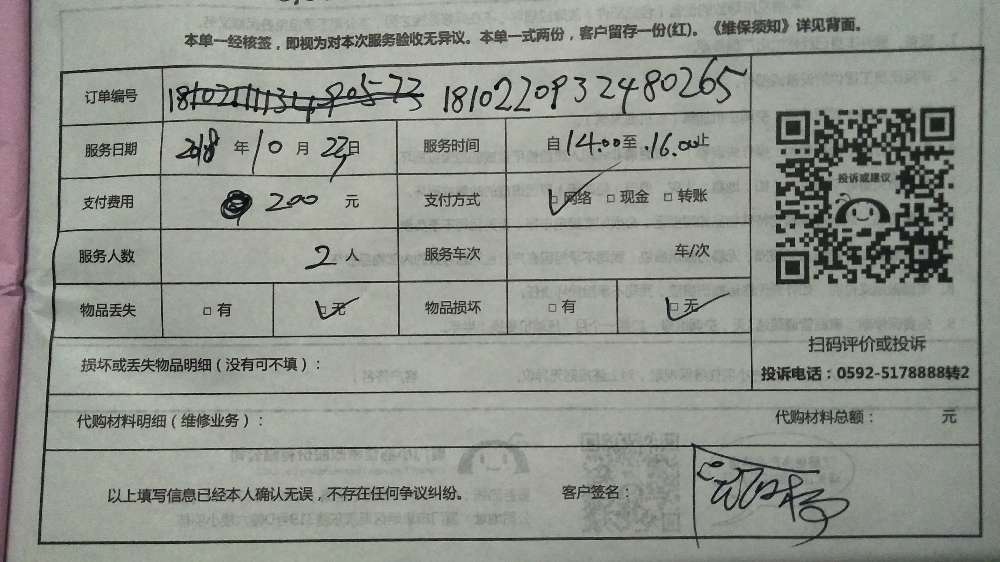 本单一经核签，即视为对本次服务验收无异议。本单一式两份，客户留存一份(红)。《维保须知》详见背面。
订单编号 1810220932480265
服务日期 2018 年 10 月 22日 服务时间 自 14.00 至 16.00 止
支付费用 200 元 支付方式 □网络 □现金 □转账
投诉或建议
服务人数 2 人 服务车次 车/次
物品丢失 □有 □无 物品损坏 □有 □无
扫码评价或投诉
损坏或丢失物品明细（没有可不填）：
投诉电话：0592-5178888转2
代购材料明细（维修业务）： 代购材料总额： 元
以上填写信息已经本人确认无误，不存在任何争议纠纷。 客户签名：